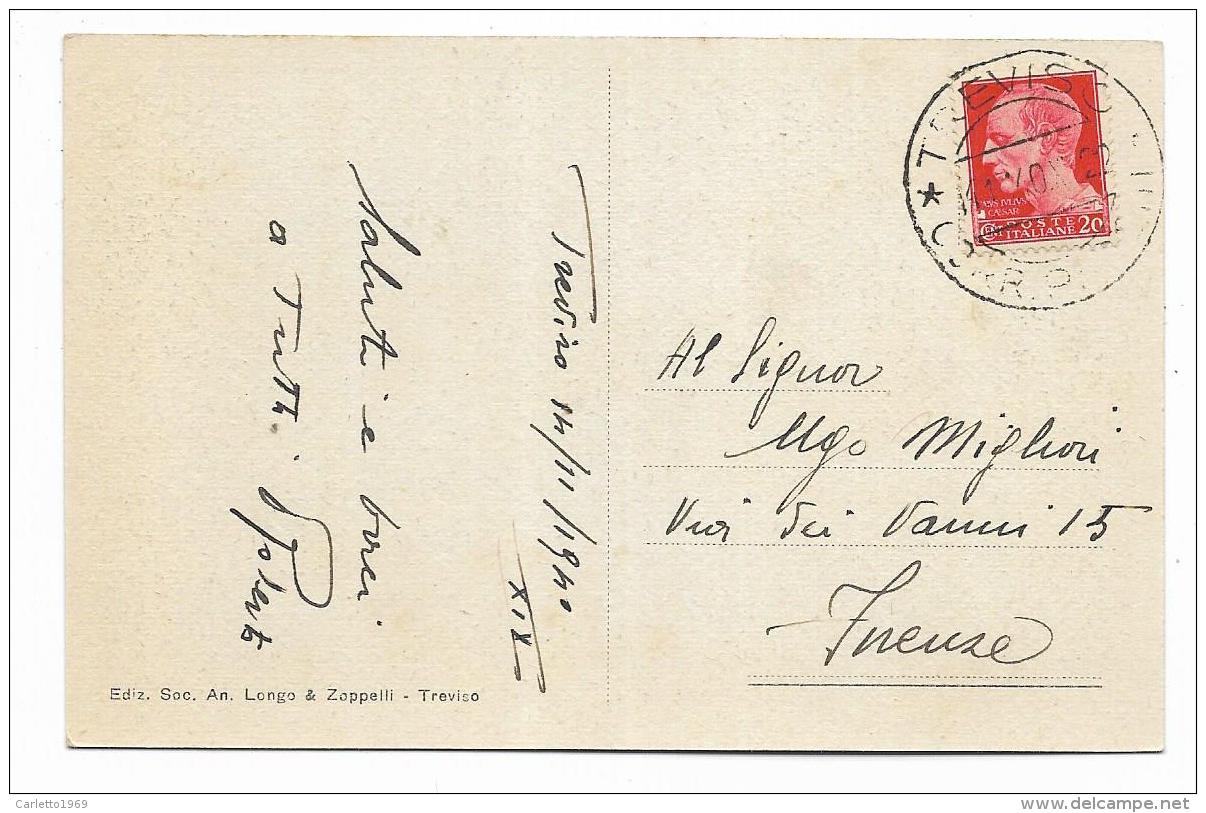 Treviso 14/11/1940
XIX
Saluti e baci
a Tutti
Al Signor
Ugo Migliori
Via dei Vanni 15
Firenze
Ediz. Soc. An. Longo & Zappelli - Treviso
TREVISO
CORR. P.
IVLIVS
CAESAR
POSTE
ITALIANE 20
Carletto1969
delcampe.net